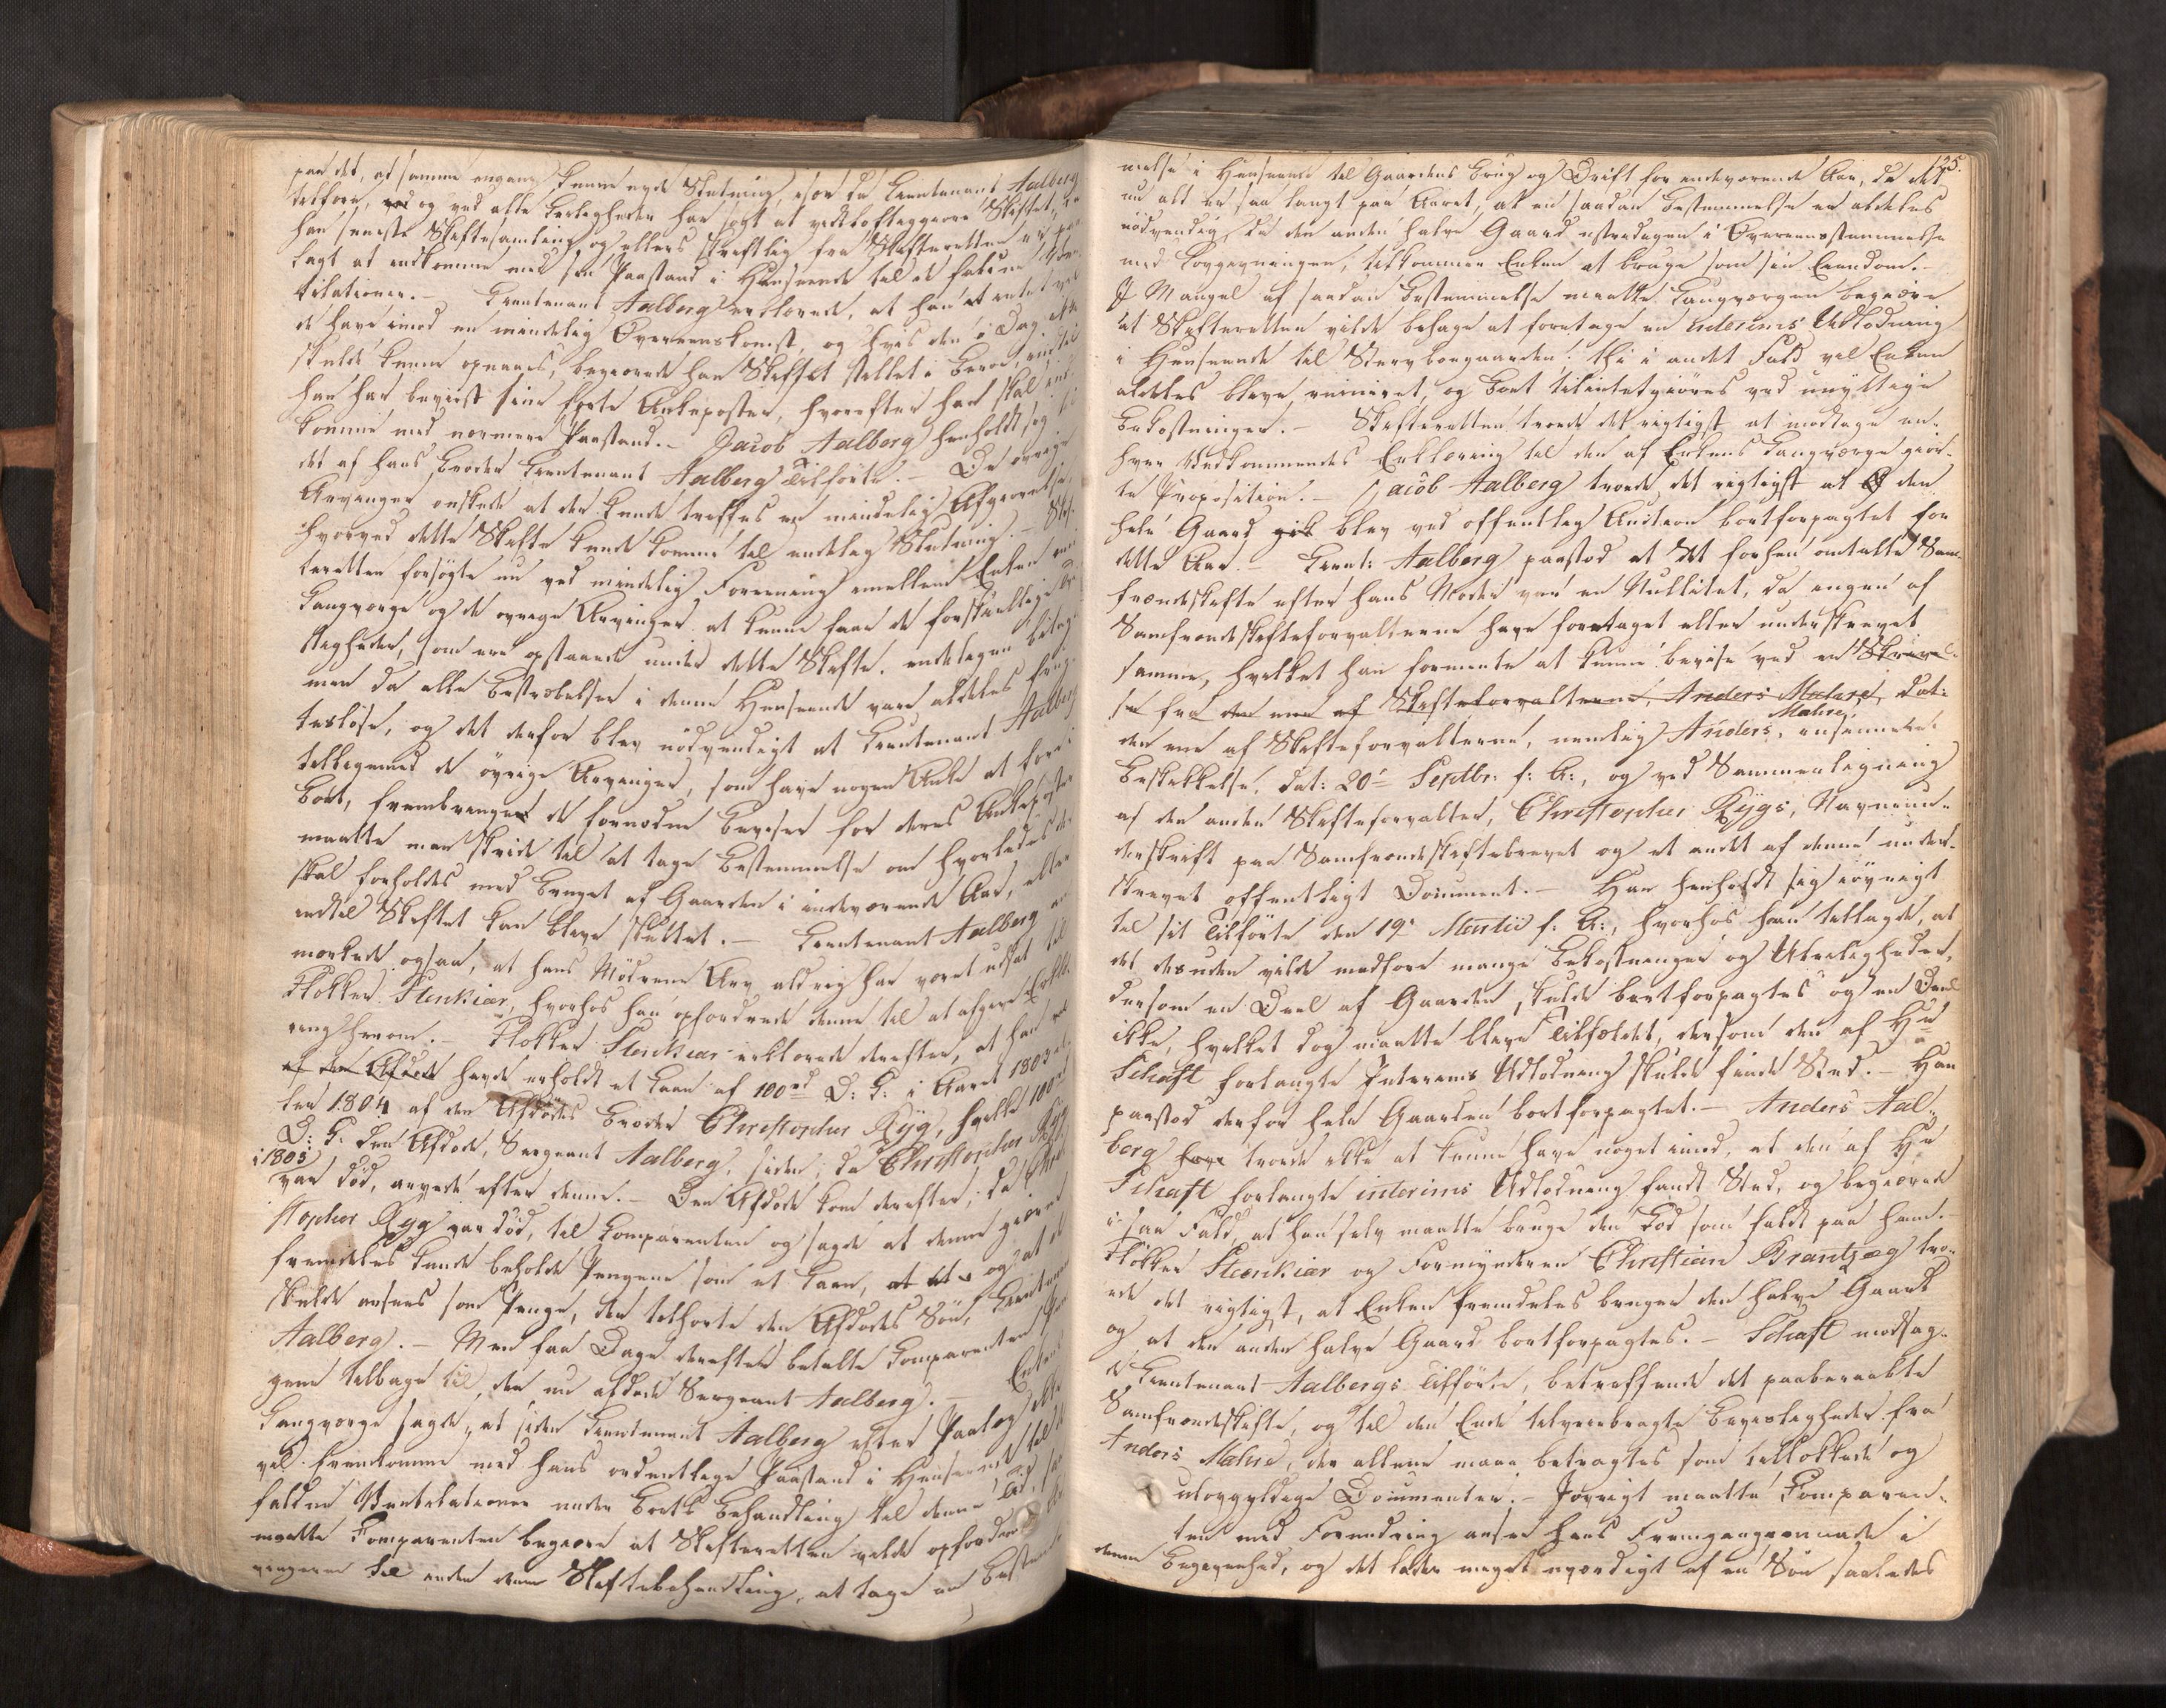 paa det, at samme engang kunne naae Slutning, især da Lieutenant Aalberg
tilforn, og ved alle Leiligheder har søgt at vidtløftiggjøre Skiftet,
han seneste Skiftesamling og ellers skriftlig fra Skifteretten er paa-
lagt at indkomme med sin Paastand i Henseende til de faldne Ven-
tilationer. – Lieutenant Aalberg erklærede, at han intet vil-
de have imod en mindelig Overeenskomst, og hvis den i Dag ikke
skulde kunne opnaaes, begjærede han Skiftet stillet i Beroe, indtil
han har beviist sineførte Ankeposter, hvorefter han skal ind-
komme med nærmere Paastand. – Jacob Aalberg henholdt sig til
det af hans Broder Lieutenant Aalberg Tilførte. – De øvrige
Arvinger ønskede at der kunde træffes en mindelig Afgjørelse,
hvorved dette Skifte kunde komme til endelig Slutning. – Skif-
teretten forsøgte nu ved mindelig Forening imellem Enken
Laugværge og de øvrige Arvinger at kunne faae de forskjellige
stigheder, som ere opstaaede under dette Skifte, endeligen bilagt
men da alle Bestræbelser i denne Henseende vare aldeles frug-
tesløse, og det derfor blev nødvendigt at Lieutenant Aalberg
tilligemed de øvrige Arvinger, som have nogen Anke at føre i
Boet, frembringer de fornødne Beviser for deres Ankeposter
maatte man skride til at tage Bestemmelse om hvorledes der
skal forholdes med Bruget af Gaarden i indeværende Aar, eller
indtil Skiftet kan blive sluttet. – Lieutenant Aalberg
mærkede ogsaa, at hans Mødrene Arv aldrig har været udsat til
Klokker Stenkiær, hvorhos han opfordrede denne til at afgive Erklæ-
ring herom. – Klokker Stenkiær erklærede derefter, at han
af den Afdøde havde erholdt et Laan af 100rd D: C: i Aaret 1803 el-
ler 1804 af den Afdødes Broder Christopher Ryg, hvilke 100rd
D: C: den Afdøde, Sergeant Aalberg, siden, da Christopher Ryg
i 1805
var død, arvede efter denne. – Den Afdøde kom derefter, da Chri-
stopher Ryg var død, til Comparenten og sagde at denne gjerne
fremdeles kunde beholde Pengene som et Laan, og at de
skulde ansees som Penge, der tilhørte den Afdødes Søn, Lieutenant
Aalberg. – Men faa Dage derefter betalte Comparenten Pen-
gene tilbage til den nu afdøde Sergeant Aalberg. – Enkens
Laugværge sagde, at siden Lieutenant Aalberg efter Paalæg ikke
vil fremkomme med hans ordentlige Paastand i Henseende til de
faldne Ventilationer under Boets Behandling til denne Tid, saa
maatte Comparenten begjære at Skifteretten vilde opfordre Ar-
vingerne til under denne Skiftebehandling, at tage en Bestem-
125.
melse i Henseende til Gaardens Brug og Drift for indeværende Aar, da det
nu alt er saa langt paa Aaret, at en saadan Bestemmelse er aldeles
nødvendig, da den anden halve Gaard i Overeensstemmelse
med Lovgivningen, tilkommer Enken at bruge som sin Eiendom. –
I Mangel af saadan Bestemmelse maatte Laugværgen begjære
at Skifteretten vilde behage at foretage en interims Udlodning
i Henseende til Stervboegaarden; thi i andet Fald vil Enken
aldeles blive ruineret, og Boet tilintetgjøres ved unyttige
Bekostninger. – Skifteretten troede det rigtigst at modtage en-
hver Vedkommendes Erklæring til den af Enkens Laugværge gjor-
te Proposition. – Jacob Aalberg troede det rigtigst at den
hele Gaard blev ved offentlig Auction bortforpagtet for
dette Aar. – Lieut: Aalberg paastod at det forhen omtalte Sam-
frændeskifte efter hans Moder var en Nullitet, da ingen af
Samfrændeskifteforvalterne have foretaget eller underskrevet
samme, hvilket han formente at kunne bevise ved en Skrivel-
se fra den ene af Skifteforvalterne, Anders Mæhre, dat:
den ene af Skifteforvalterne, nemlig Anders Mæhre,
Beskikkelse, dat: 20de Septbr: f: A:, og ved Sammenligning
af den anden Skifteforvalter, Christopher Rygs, Navneun-
derskrift paa Samfrændeskiftebrevet og et andet af denne under-
skrevet offentligt Document. – Han henholdt sig iøvrigt
til sit Tilførte den 19de Martii f: A:, hvorhos han tillagde, at
det desuden vilde medføre mange Bekostninger og Uleiligheder,
dersom en Deel af Gaarden skulde bortforpagtes og en Deel
ikke, hvilket dog maatte blive Tilfældet, dersom den af Hr
Schaft forlangte Interims Udlodning skulde finde Sted. – Han
paastod derfor hele Gaarden bortforpagtet. – Anders Aal-
berg troede ikke at kunne have noget imod, at den af Hr
Schaft forlangte interims Udlodning fandt Sted, og begjærede
i saa Fald, at han selv maatte bruge den Lod som faldt paa ham. –
Klokker Stenkiær og Formynderen Christian Brantzæg tro-
ede det rigtigst, at Enken fremdeles bruger den halve Gaard
og at den anden halve Gaard bortforpagtes. – Schaft modsag-
de Lieutenant Aalbergs Tilførte, betreffende det paaberaabte
Samfrændeskifte, og til den Ende tilveiebragte Bevisligheder fra
Anders Mæhre, der allene maae betragtes som tillokkede og
ulovgyldige Documenter. – Iøvrigt maatte Comparen-
ten med Forundring ansee hans Fremgangsmaade i
denne Begivenhed, og det lader meget uværdigt af en Søn saaledes